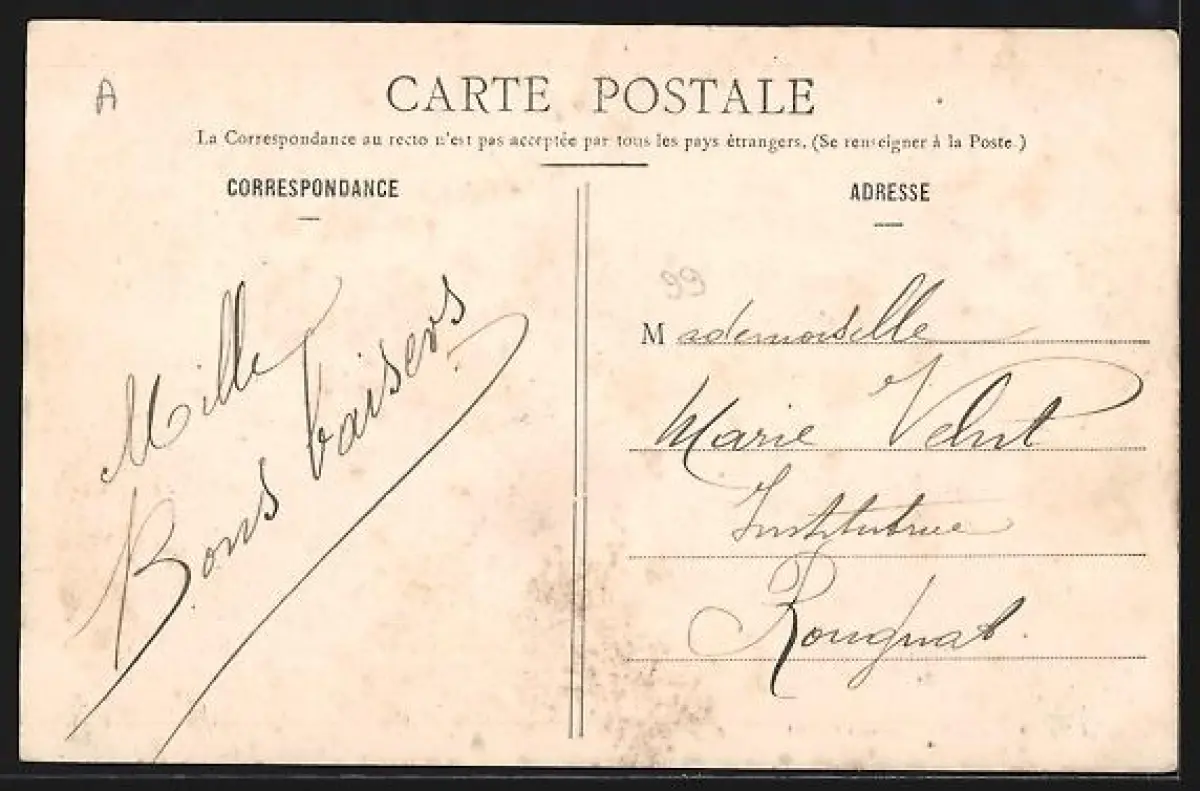 A
CARTE POSTALE
La Correspondance au recto n'est pas acceptée par tous les pays étrangers. (Se renseigner à la Poste)
CORRESPONDANCE
Mille
Bons baisers
ADRESSE
99
Mademoiselle
Marie
Institutrice
Rougnat.